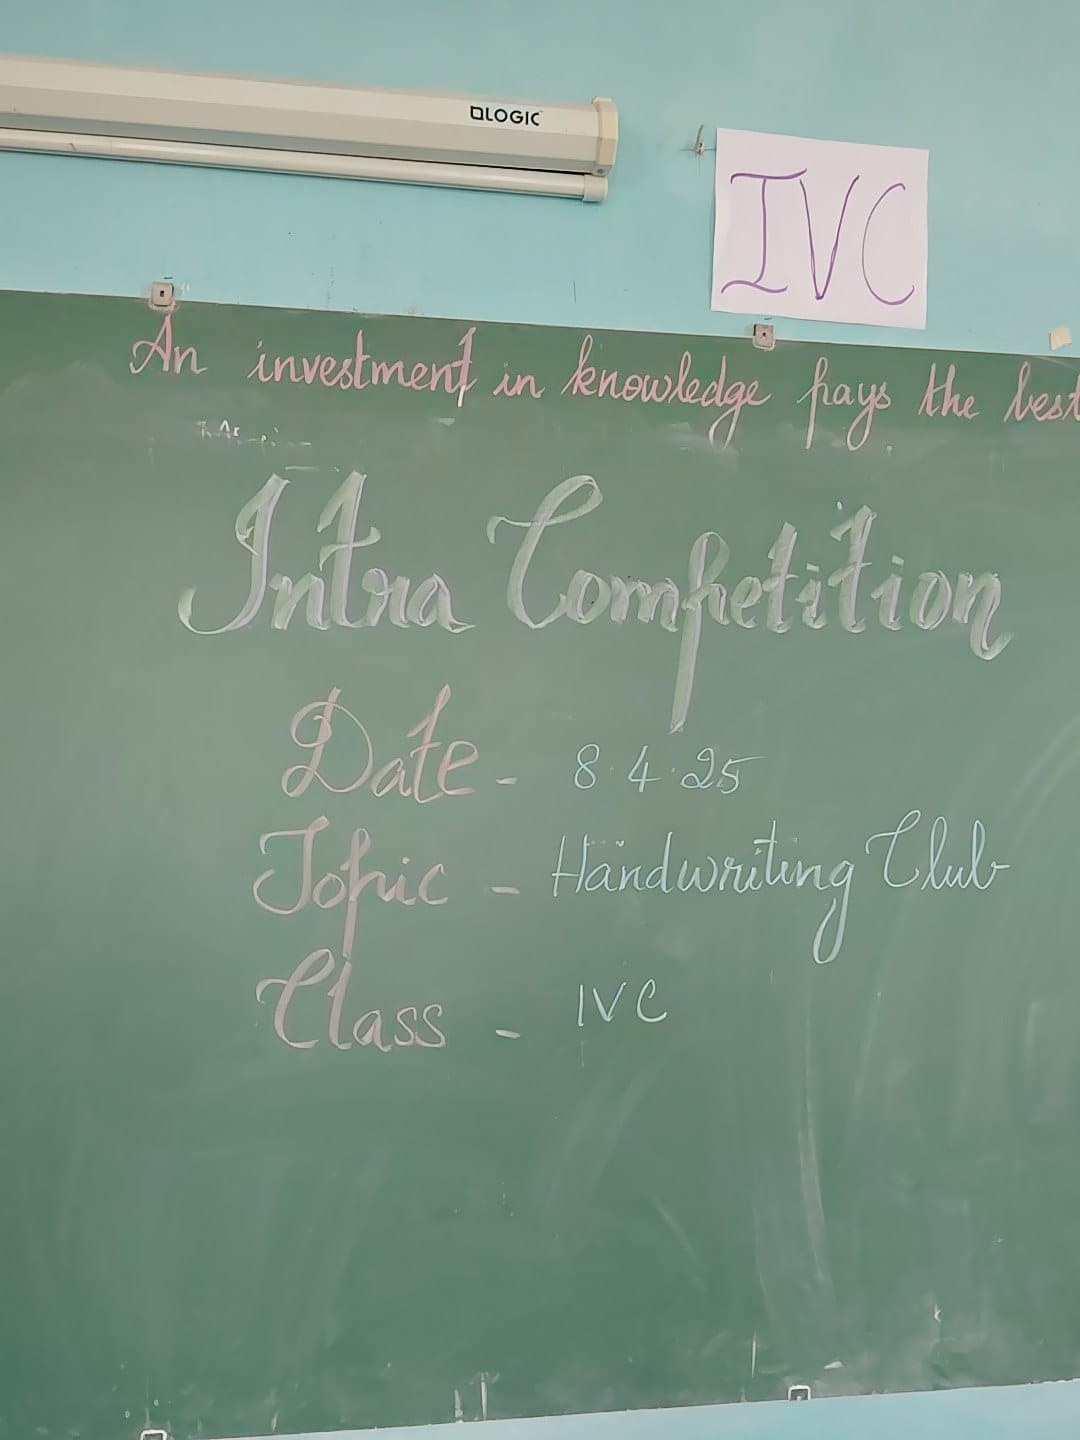 LOGIC
IVC
An investment in knowledge pays the best
Intra Competition
Date - 8.4.25
Topic - Handwriting Club
Class - IVC